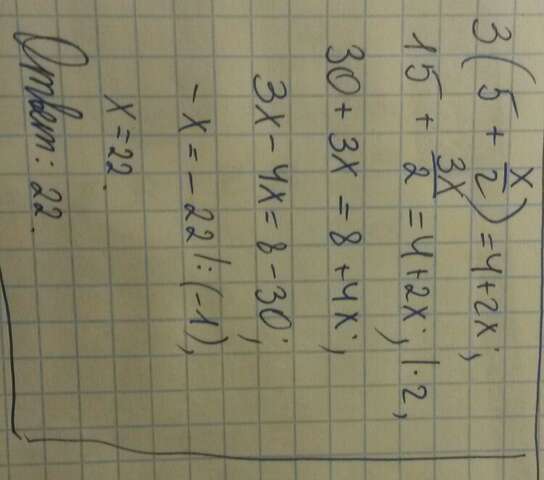 3(5 + x/2) = 4+2x;
15 + 3x/2 = 4+2x; |·2,
30 + 3x = 8 + 4x;
3x - 4x = 8 - 30;
- x = - 22 |:(-1),
x = 22.
Ответ: 22.